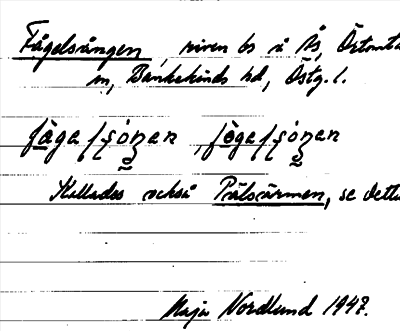 Fågelsången, riven bs i Ås, Örtomta
sn, Bankekinds hd, Östg. l.
fåga/sóŋen, fǫga/sóŋen
Kallades också Pålsärmen, se detta
Maja Nordlund 1947.